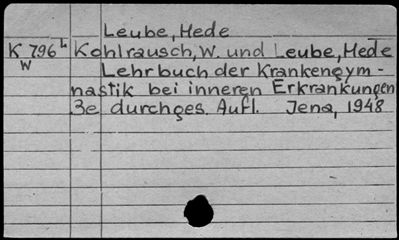 Leube, Hede
K 796 L Kohlrausch, W. und Leube, Hede
W Lehrbuch der Krankengym-
nastik bei inneren Erkrankungen
3e durchges. Aufl. Jena, 1948